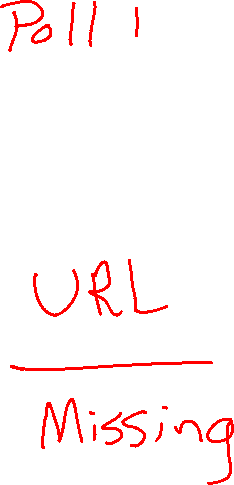 Poll 1
URL
Missing